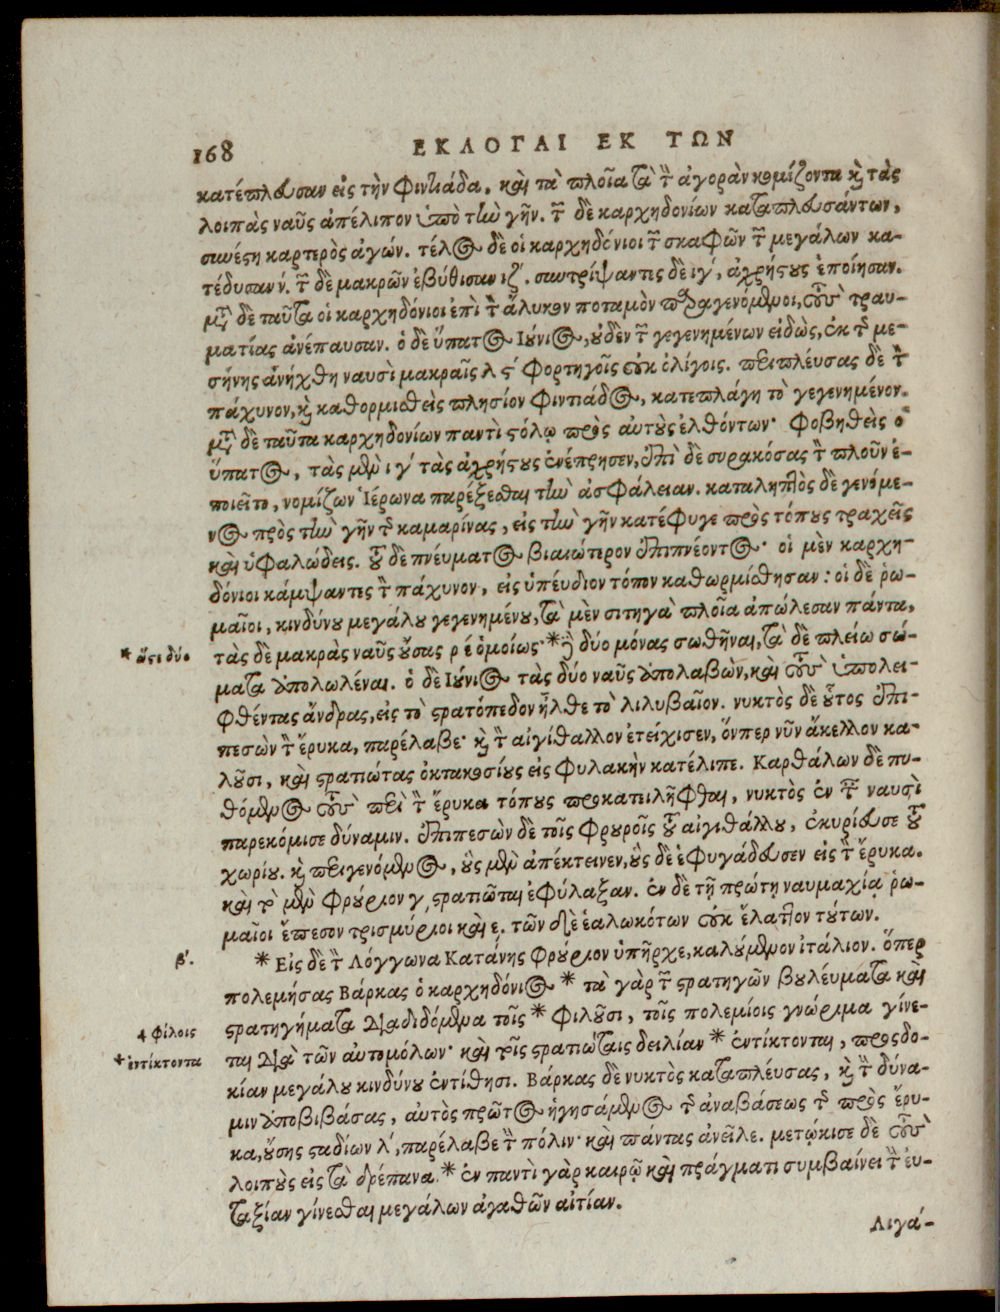 168 ΕΚΛΟΓΑΙ ΕΚ ΤΩΝ
κατέπλευσαν εἰς τὴν Φιντιάδα, καὶ τὰ πλοῖα τὰ τὴν ἀγορὰν κομίζοντα καὶ τὰς
λοιπὰς ναῦς ἀπέλιπον ὑπὸ τὴν γῆν. τῶν δὲ καρχηδονίων καταπλευσάντων,
συνέστη καρτερὸς ἀγών. τέλος δὲ οἱ καρχηδόνιοι τῶν σκαφῶν τῶν μεγάλων κα-
τέδυσαν ν́. τῶν δὲ μακρῶν ἐβύθισαν ιζ́. συντρίψαντες δὲ ιγ́, ἀχρήστους ἐποίησαν.
μετὰ δὲ ταῦτα οἱ καρχηδόνιοι ἐπὶ τὸν ἅλυκον ποταμὸν παραγενόμενοι, τοὺς τραυ-
ματίας ἀνέπαυσαν. ὁ δὲ ὕπατος Ιούνιος, οὐδὲν τῶν γεγενημένων εἰδὼς, ἐκ τῆς με-
σήνης ἀνήχθη ναυσὶ μακραῖς λς́ φορτηγοῖς οὐκ ὀλίγοις. περιπλεύσας δὲ τὸν
πάχυνον, καὶ καθορμισθεὶς πλησίον Φιντιάδος, κατεπλάγη τὸ γεγενημένον.
μετὰ δὲ ταῦτα καρχηδονίων παντὶ στόλῳ πρὸς αὐτοὺς ἐλθόντων· φοβηθεὶς ὁ
ὕπατος, τὰς μὲν ιγ́ τὰς ἀχρήστους ἐνέπρησεν, ἐπὶ δὲ συρακόσας τὸν πλοῦν ἐ-
ποιεῖτο, νομίζων Ἱέρωνα παρέξεσθαι τὴν ἀσφάλειαν. καταληπτὸς δὲ γενόμε-
νος πρὸς τὴν γῆν τῆς καμαρίνας, εἰς τὴν γῆν κατέφυγε πρὸς τόπους τραχεῖς
καὶ ὑφαλώδεις. τοῦ δὲ πνέυματος βιαιώτερον ἐπιπνέοντος· οἱ μὲν καρχη-
δόνιοι κάμψαντες τὸν πάχυνον, εἰς ὑπέυδιον τόπον καθωρμίσθησαν: οἱ δὲ ῥω-
μαῖοι, κινδύνου μεγάλου γεγενημένου, τὰ μὲν σιτηγὰ πλοῖα ἀπώλεσαν πάντα,
* ὥστε δύο
τὰς δὲ μακρὰς ναῦς οὔσας ρέ ὁμοίως· * ἢ δύο μόνας σωθῆναι, τὰ δὲ πλείω σώ-
ματα ἀπολωλέναι. ὁ δὲ Ιούνιος τὰς δύο ναῦς ἀπολαβὼν, καὶ τοὺς ὑπολει-
φθέντας ἄνδρας, εἰς τὸ στρατόπεδον ἦλθε τὸ λιλυβαῖον. νυκτὸς δὲ οὗτος ἐπι-
πεσὼν τὸν ἔρυκα, παρέλαβε· καὶ τὸν αἰγίθαλλον ἐτείχισεν, ὅνπερ νῦν ἄκελλον κα-
λοῦσι, καὶ στρατιώτας ὀκτακοσίους εἰς φυλακὴν κατέλιπε. Καρθάλων δὲ πυ-
θόμενος τοὺς περὶ τὸν ἔρυκα τόπους προκατειλῆφθαι, νυκτὸς ἐν ταῖς ναυσὶ
παρεκόμισε δύναμιν. ἐπιπεσὼν δὲ τοῖς φρουροῖς τοῦ αἰγιθάλλου, ἐκυρίευσε τοῦ
χωρίου. καὶ περιγενόμενος, οὓς μὲν ἀπέκτεινεν, οὓς δὲ ἐφυγάδευσεν εἰς τὸν ἔρυκα.
καὶ τὸ μὲν φρούριον γ͵ στρατιῶται ἐφύλαξαν. ἐν δὲ τῇ πρώτῃ ναυμαχίᾳ ῥω-
μαῖοι ἔπεσον τρισμύριοι καὶ ε. τῶν δὲ ἑαλωκότων οὐκ ἔλαττον τούτων.
β΄.
* Εἰς δὲ τὸν Λόγγωνα Κατάνης φρούριον ὑπῆρχε, καλούμενον ἰτάλιον. ὅπερ
πολεμήσας Βάρκας ὁ καρχηδόνιος * τὰ γὰρ τῶν στρατηγῶν βουλέυματα καὶ
ϥ φίλοις
στρατηγήματα διαδιδόμενα τοῖς * φιλοῦσι, τοῖς πολεμίοις γνώριμα γίνε-
+ ἐντίκτοντα
ται διὰ τῶν αὐτομόλων· καὶ τοῖς στρατιώταις δειλίαν * ἐντίκτονται, προσδο-
κίαν μεγάλου κινδύνου ἐντίθησι. Βάρκας δὲ νυκτὸς καταπλέυσας, καὶ τὴν δύνα-
μιν ἀποβιβάσας, αὐτὸς πρῶτος ἡγησάμενος τῆς ἀναβάσεως τῆς πρὸς ἔρυ-
κα, οὔσης σταδίων λ΄, παρέλαβε τὴν πόλιν· καὶ πάντας ἀνεῖλε. μετῴκισε δὲ τοὺς
λοιποὺς εἰς τὰ δρέπανα. * ἐν παντὶ γὰρ καιρῷ καὶ πράγματι συμβαίνει τὴν ἐυ-
ταξίαν γίνεσθαι μεγάλων ἀγαθῶν αἰτίαν.
Λιγά-